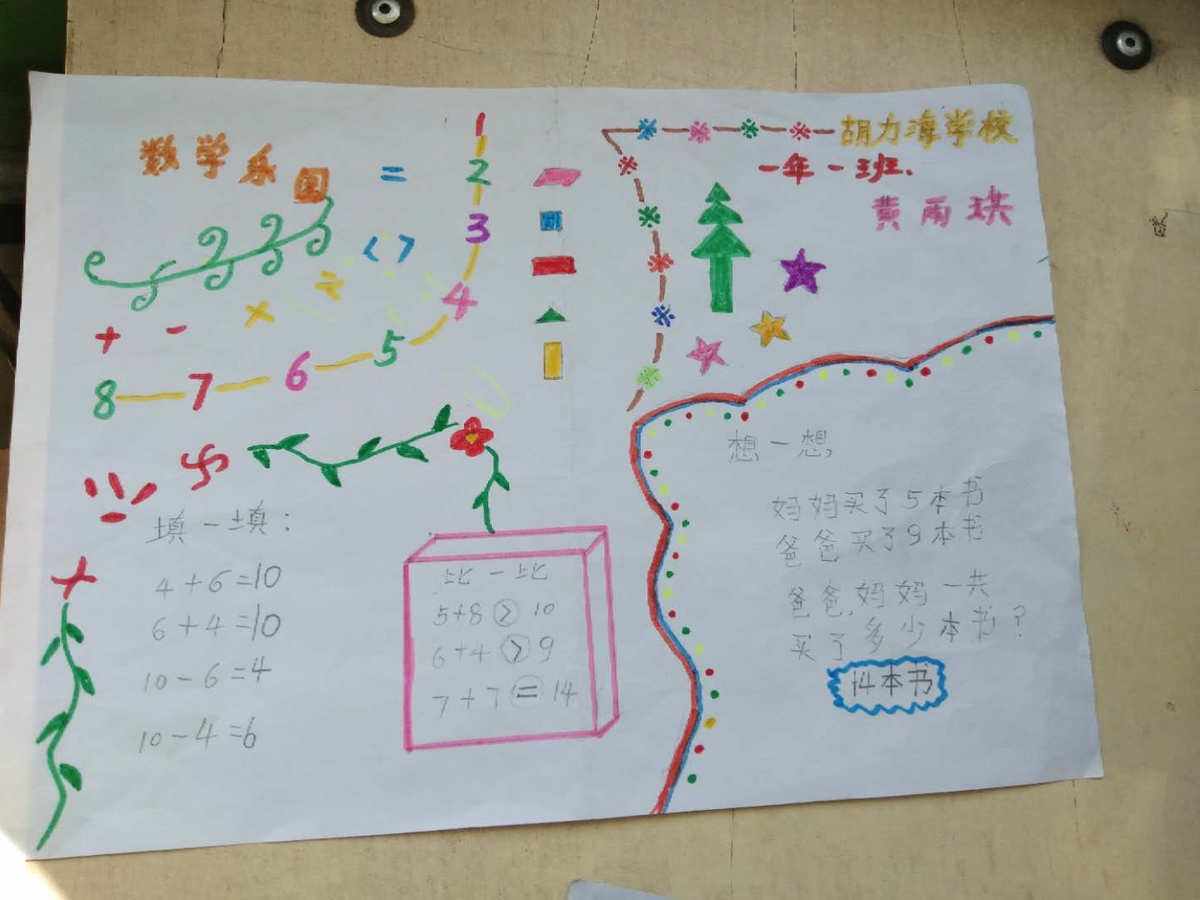 数学乐园
=
< >
÷
×
+ -
1
2
3
4
5
6
7
8
胡力海学校
一年一班.
黄雨琪
填一填:
4+6=10
6+4=10
10-6=4
10-4=6
比一比
5+8>10
6+4>9
7+7=14
想一想,
妈妈买了5本书
爸爸买了9本书
爸爸,妈妈一共
买了多少本书?
14本书